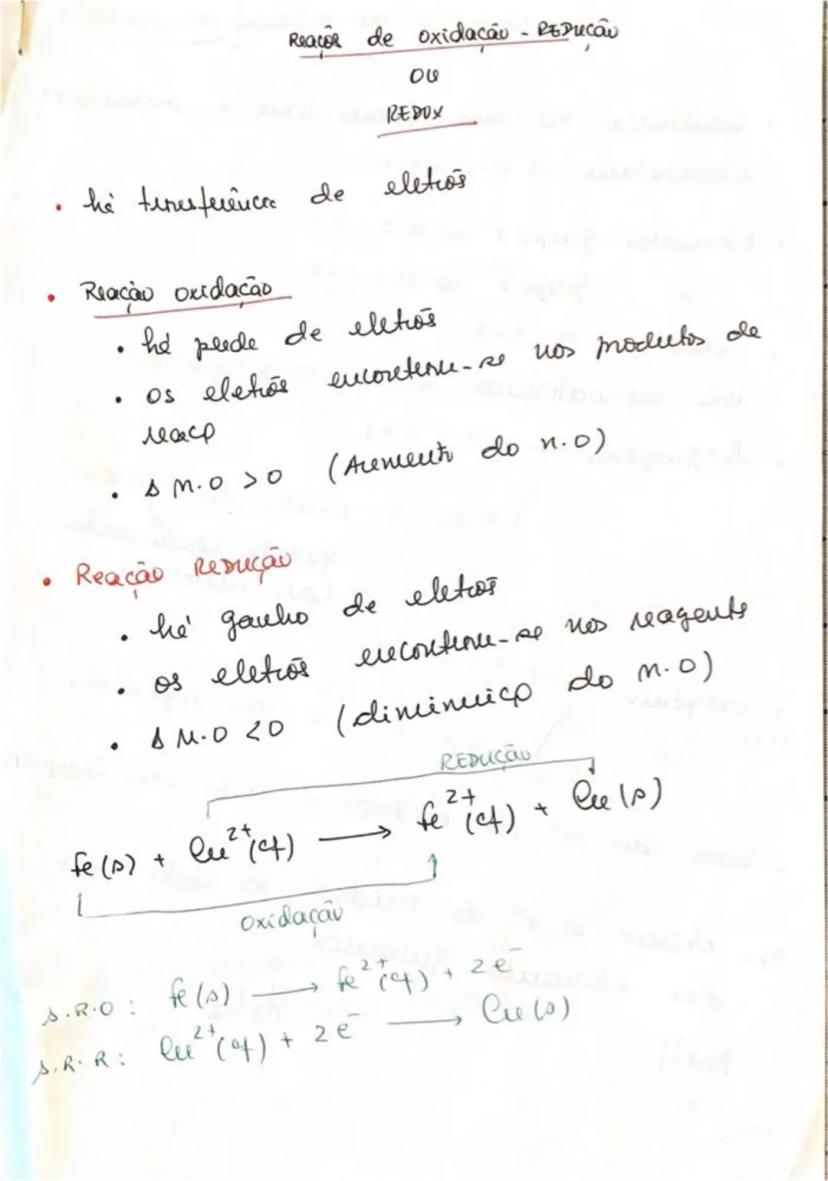 Reações de oxidação - REDUÇÃO
OU
REDOX
• há transferência de eletrõs
• Reação oxidação
• há perda de eletrõs
• os eletrõs encontram-se nos produtos de
reaçp
• Δ n.O >0 (Aumento do n.O)
• Reação REDUÇÃO
• há ganho de eletrõs
• os eletrõs encontram-se nos reagente
• Δ n.O <0 (diminuiçp do n.O)
REDUÇÃO
Fe (s) + Cu²⁺(aq) ⟶ Fe²⁺(aq) + Cu (s)
oxidação
S.R.O: Fe(s) ⟶ Fe²⁺(aq) + 2e⁻
S.R.R: Cu²⁺(aq) + 2e⁻ ⟶ Cu(s)